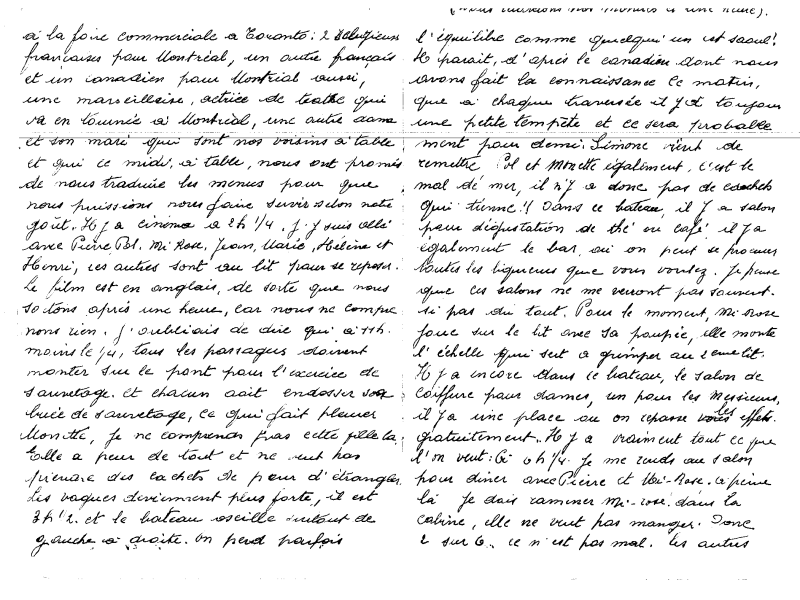 à la foire commerciale à Toronto: 2
françaises pour Montréal, un autre français
et un canadien pour Montréal aussi,
une marseillaise, actrice de teatre qui
va en tournée à Montréal, une autre dame
et son mari qui sont nos voisins à table
et qui ce midi, à table, nous ont promis
de nous traduire les menus pour que
nous puissions nous faire servir selon notre
goût. Il y a cinéma à 2h 1/4. J'y suis allé
avec Pierre Pol. Mi-Rose, Jean, Marie, Hélène et
Henri, les autres sont au lit pour se reposer.
Le film est en anglais, de sorte que nous
sortons après une heure, car nous ne compre
nons rien. J'oubliais de dire qui à 11h.
moins le 1/4, tous les passagers doivent
monter sur le pont pour l'exercice de
sauvetage. et chacun doit endosser son
buée de sauvetage, ce qui fait pleurer
Monette, je ne comprends pas cette fille là,
Elle a peur de tout et ne veut pas
prendre des cachets de peur d'étrangler
Les vagues deviennent plus forte, il est
3h 1/2. et le bateau oscille surtout de
gauche à droite. On perd parfois
(Nous reculons nos montres d'une heure).
l'équilibre comme quelqu'un est saoul!
Il parait, d'après le canadien dont nous
avons fait la connaissance ce matin,
que à chaque traversée il y a toujours
une petite tempête et ce sera probable
ment pour demi. Simone vient de
remettre Pol et Monette également, c'est le
mal de mer, il n'y a donc pas de cachets
qui tienne!! Dans ce bateau, il y a salon
pour dégustation de thé ou café il y a
également le bar, où on peut se procurer
toutes les liqueurs que vous voulez. Je pense
que ces salons ne me verront pas souvent.
si pas du tout. Pour le moment, Mi-Rose
joue sur le lit avec sa poupée, elle monte
l'échelle qui sert à grimper au 2eme lit.
Il y a encore dans ce bateau, le salon de
coiffure pour dames, un pour les messieurs,
il y a une place ou on repasse les effets.
gratuitement. Il y a vraiment tout ce que
l'on veut: à 6h 1/4. je me rends au salon
pour diner avec Pierre et Mi-Rose. à peine
là je dois ramener Mi-rose dans la
cabine, elle ne veut pas manger. Donc
2 sur 6.. ce n'est pas mal. Les autres